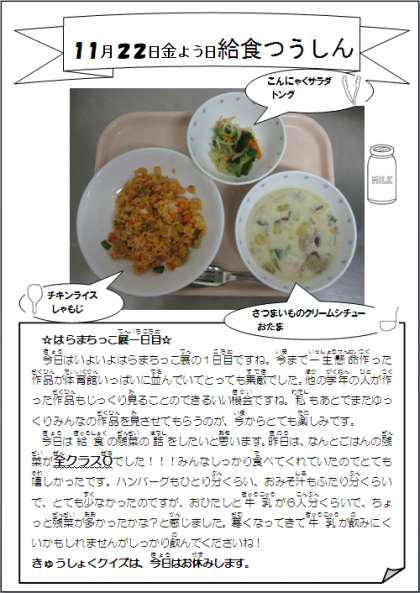 11月22日金よう日給食つうしん
こんにゃくサラダ
トング
MILK
チキンライス
しゃもじ
さつまいものクリームシチュー
おたま
☆はらまちっこ展一日目☆
今日はいよいよはらまちっこ展の1日目ですね。今まで一生懸命作った
作品が体育館いっぱいに並んでいてとっても素敵でした。他の学年の人が作
った作品もじっくり見ることのできるいい機会ですね。私もあとでまたゆっ
くりみんなの作品を見させてもらうのが、今からとても楽しみです。
今日は給食の残菜の話をしたいと思います。昨日は、なんとごはんの残
菜が全クラス0でした！！！みんなしっかり食べてくれていたのでとても
嬉しかったです。ハンバーグもひとり分くらい、おみそ汁もふたり分くらい
で、とても少なかったのですが、おひたしと牛乳が6人分くらいで、ちょ
っと残菜が多かったかな？と感じました。寒くなってきて牛乳が飲みにく
いかもしれませんがしっかり飲んでくださいね！
きゅうしょくクイズは、今日はお休みします。